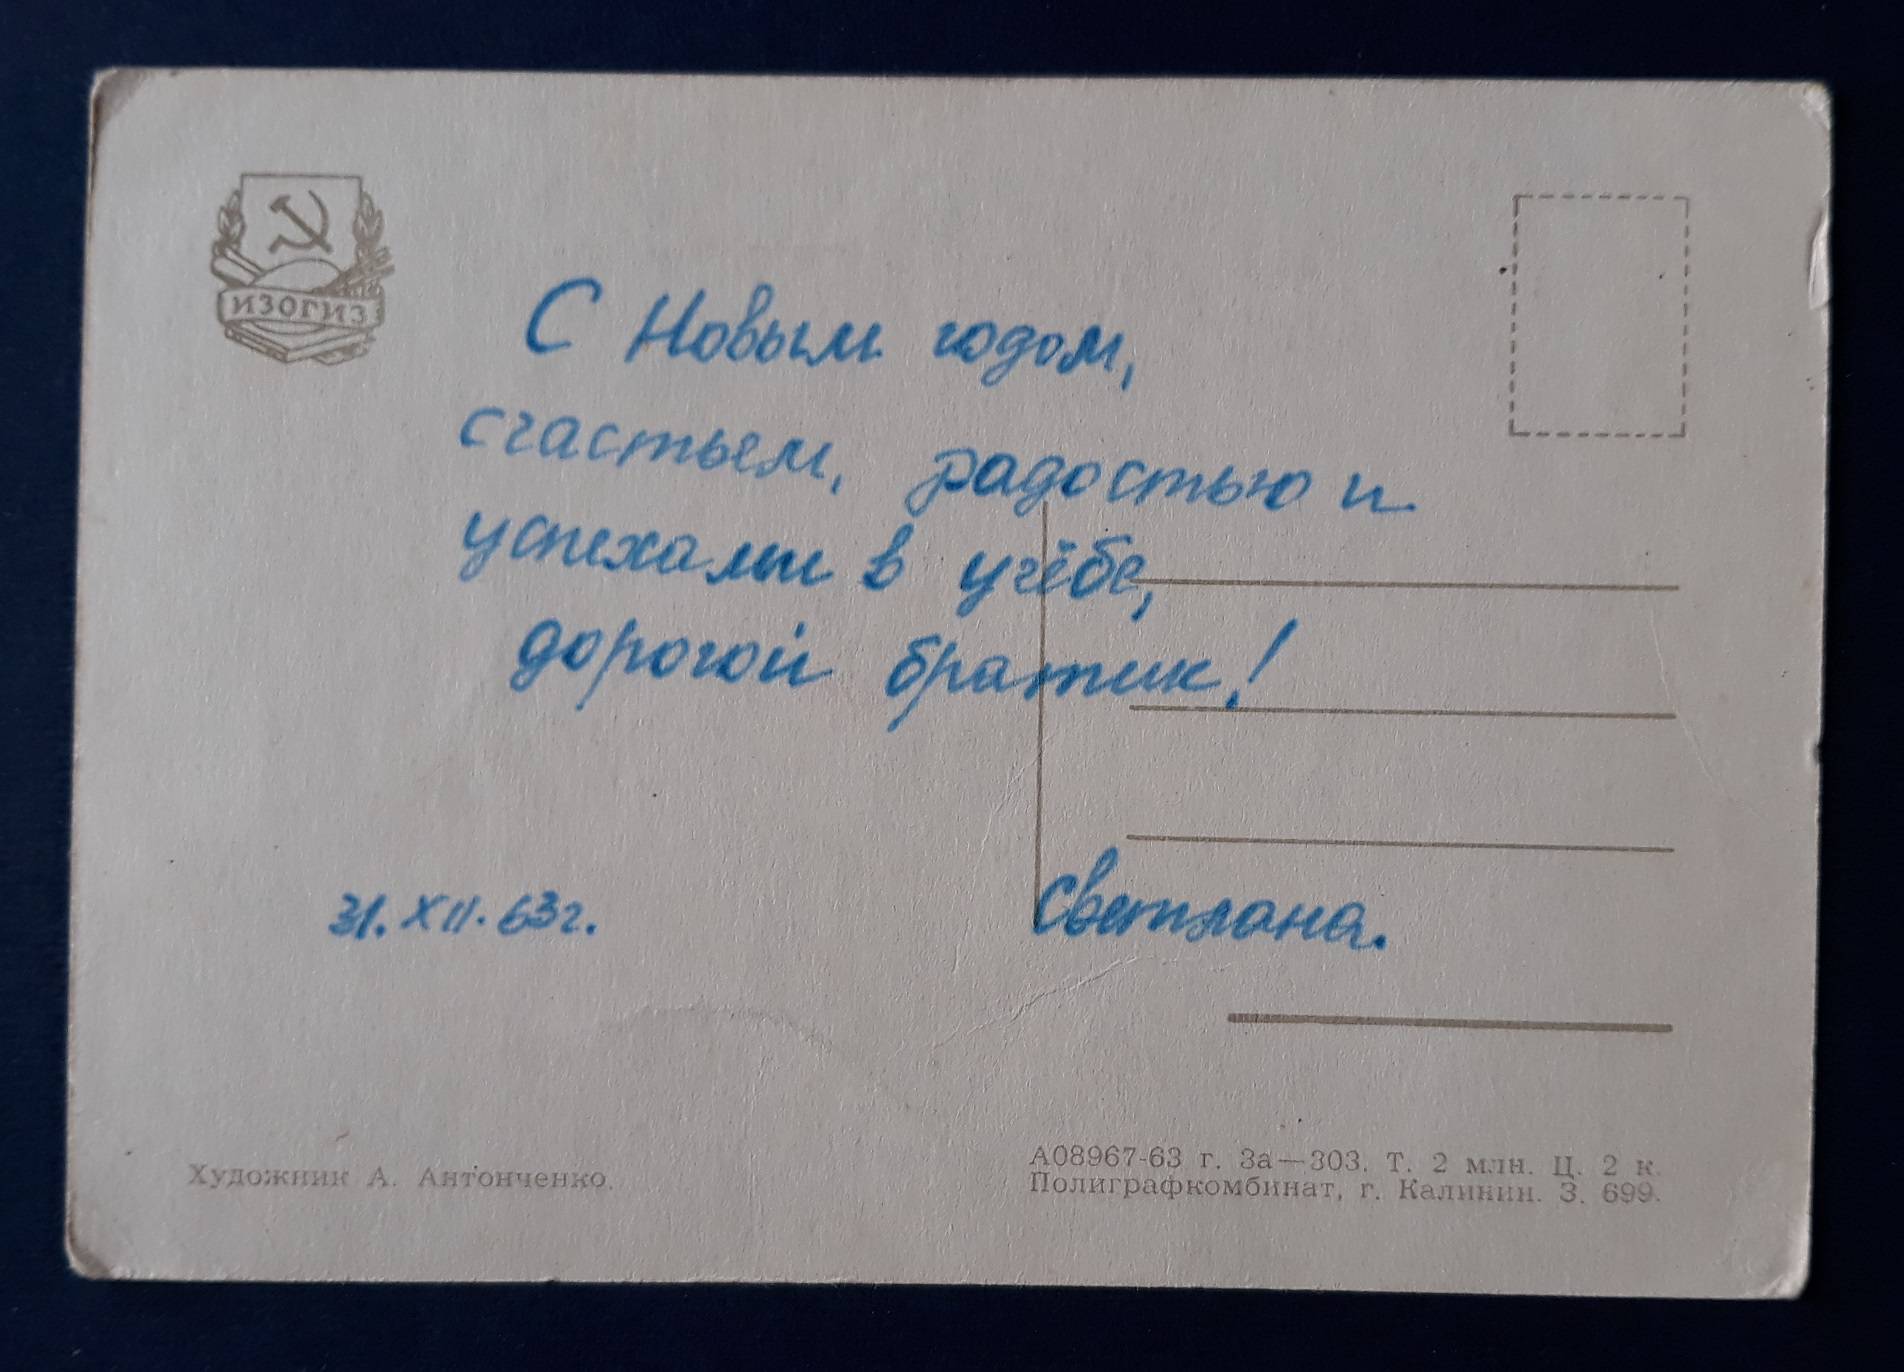 ИЗОГИЗ
С Новым годом,
счастьем, радостью и
успехами в учёбе,
дорогой братик!
31.XII.63г.
Светлана.
Художник А. Антонченко.
А08967-63 г. За—303. Т. 2 млн. Ц. 2 к.
Полиграфкомбинат, г. Калинин. З. 699.